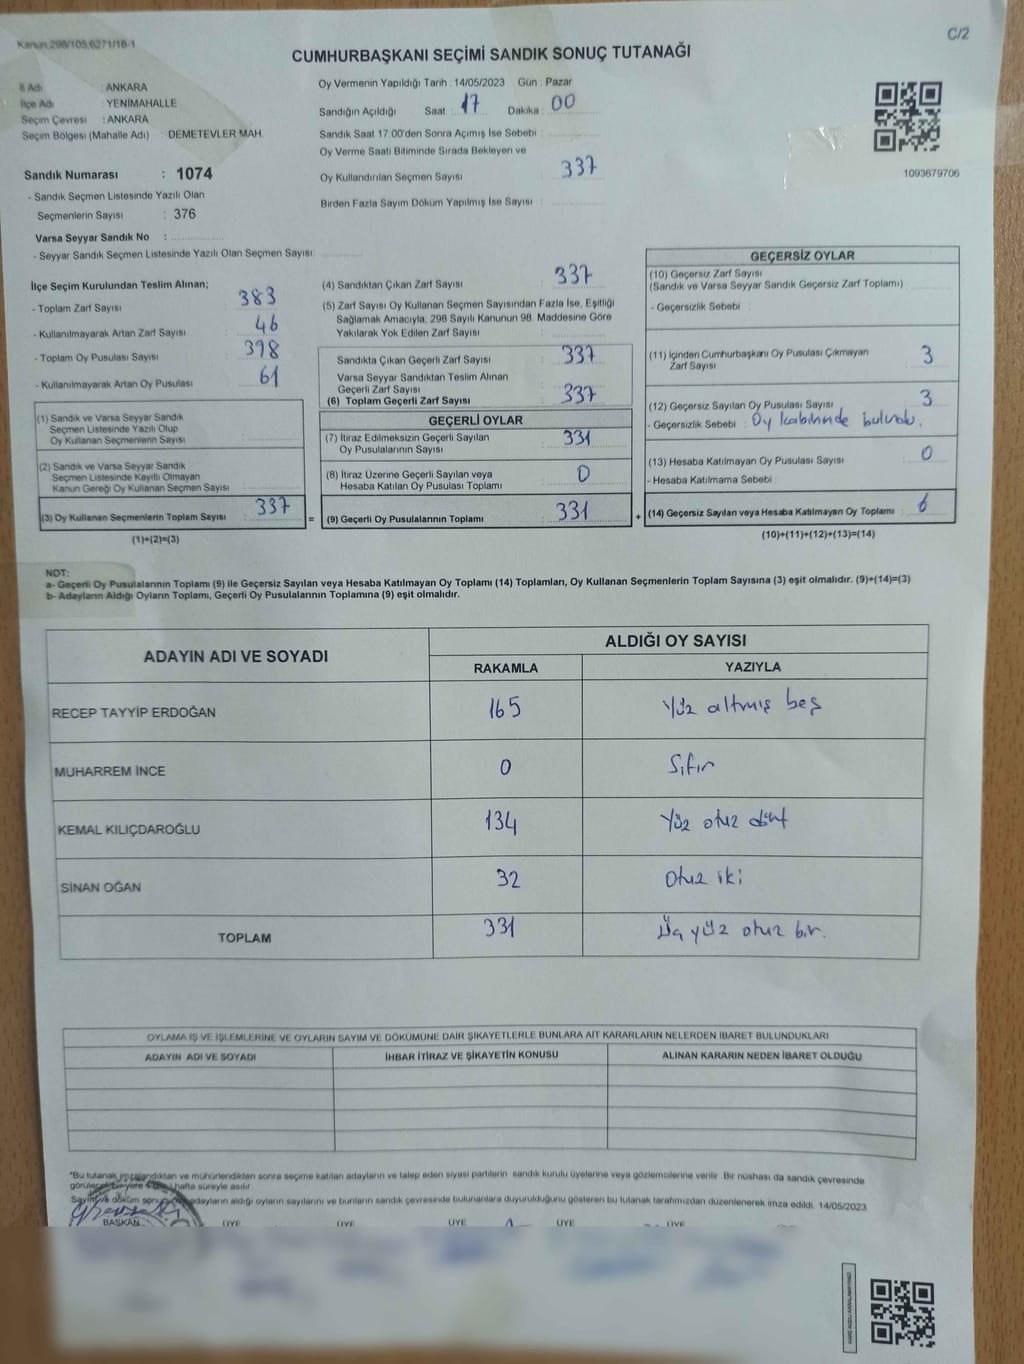 Kanun:298/105,6271/18-1
C/2
CUMHURBAŞKANI SEÇİMİ SANDIK SONUÇ TUTANAĞI
İl Adı : ANKARA
İlçe Adı : YENİMAHALLE
Seçim Çevresi : ANKARA
Seçim Bölgesi (Mahalle Adı) : DEMETEVLER MAH.
Sandık Numarası : 1074
- Sandık Seçmen Listesinde Yazılı Olan
Seçmenlerin Sayısı : 376
Varsa Seyyar Sandık No :
- Seyyar Sandık Seçmen Listesinde Yazılı Olan Seçmen Sayısı
Oy Vermenin Yapıldığı Tarih : 14/05/2023 Gün : Pazar
Sandığın Açıldığı Saat : 17 Dakika : 00
Sandık Saat 17.00'den Sonra Açımış İse Sebebi :
Oy Verme Saati Bitiminde Sırada Bekleyen ve
Oy Kullandırılan Seçmen Sayısı : 337
Birden Fazla Sayım Döküm Yapılmış İse Sayısı :
1093679706
İlçe Seçim Kurulundan Teslim Alınan;
- Toplam Zarf Sayısı : 383
- Kullanılmayarak Artan Zarf Sayısı : 46
- Toplam Oy Pusulası Sayısı : 398
- Kullanılmayarak Artan Oy Pusulası : 61
(1) Sandık ve Varsa Seyyar Sandık
Seçmen Listesinde Yazılı Olup
Oy Kullanan Seçmenlerin Sayısı :
(2) Sandık ve Varsa Seyyar Sandık
Seçmen Listesinde Kayıtlı Olmayan
Kanun Gereği Oy Kullanan Seçmen Sayısı :
(3) Oy Kullanan Seçmenlerin Toplam Sayısı : 337
(1)+(2)=(3)
(4) Sandıktan Çıkan Zarf Sayısı : 337
(5) Zarf Sayısı Oy Kullanan Seçmen Sayısından Fazla İse, Eşitliği
Sağlamak Amacıyla, 298 Sayılı Kanunun 98. Maddesine Göre
Yakılarak Yok Edilen Zarf Sayısı :
Sandıkta Çıkan Geçerli Zarf Sayısı : 337
Varsa Seyyar Sandıktan Teslim Alınan
Geçerli Zarf Sayısı :
(6) Toplam Geçerli Zarf Sayısı : 337
GEÇERLİ OYLAR
(7) İtiraz Edilmeksizin Geçerli Sayılan
Oy Pusulalarının Sayısı : 331
(8) İtiraz Üzerine Geçerli Sayılan veya
Hesaba Katılan Oy Pusulası Toplamı : 0
= (9) Geçerli Oy Pusulalarının Toplamı : 331
GEÇERSİZ OYLAR
(10) Geçersiz Zarf Sayısı
(Sandık ve Varsa Seyyar Sandık Geçersiz Zarf Toplamı) :
- Geçersizlik Sebebi :
(11) İçinden Cumhurbaşkanı Oy Pusulası Çıkmayan
Zarf Sayısı : 3
(12) Geçersiz Sayılan Oy Pusulası Sayısı : 3
- Geçersizlik Sebebi : Oy kabininde bulundu.
(13) Hesaba Katılmayan Oy Pusulası Sayısı : 0
- Hesaba Katılmama Sebebi :
+ (14) Geçersiz Sayılan veya Hesaba Katılmayan Oy Toplamı : 6
(10)+(11)+(12)+(13)=(14)
NOT:
a- Geçerli Oy Pusulalarının Toplamı (9) ile Geçersiz Sayılan veya Hesaba Katılmayan Oy Toplamı (14) Toplamları, Oy Kullanan Seçmenlerin Toplam Sayısına (3) eşit olmalıdır. (9)+(14)=(3)
b- Adayların Aldığı Oyların Toplamı, Geçerli Oy Pusulalarının Toplamına (9) eşit olmalıdır.
ADAYIN ADI VE SOYADI ALDIĞI OY SAYISI
RAKAMLA YAZIYLA
RECEP TAYYİP ERDOĞAN 165 Yüz altmış beş
MUHARREM İNCE 0 Sıfır
KEMAL KILIÇDAROĞLU 134 Yüz otuz dört
SİNAN OĞAN 32 Otuz iki
TOPLAM 331 Üç yüz otuz bir.
OYLAMA İŞ VE İŞLEMLERİNE VE OYLARIN SAYIM VE DÖKÜMÜNE DAİR ŞİKAYETLERLE BUNLARA AİT KARARLARIN NELERDEN İBARET BULUNDUKLARI
ADAYIN ADI VE SOYADI İHBAR İTİRAZ VE ŞİKAYETİN KONUSU ALINAN KARARIN NEDEN İBARET OLDUĞU
*Bu tutanak imzalandıktan ve mühürlendikten sonra seçime katılan adayların ve talep eden siyasi partilerin sandık kurulu üyelerine veya gözlemcilerine verilir. Bir nüshası da sandık çevresinde
görülecek bir yere hafta süreyle asılır.
Sayım ve döküm adayların aldığı oyların sayılarını ve bunların sandık çevresinde bulunanlara duyurulduğunu gösteren bu tutanak tarafımızdan düzenlenerek imza edildi. 14/05/2023
BAŞKAN ÜYE ÜYE ÜYE ÜYE ÜYE